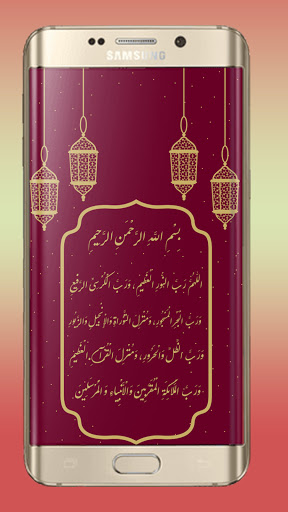 SAMSUNG
بِسْمِ اللهِ الرَّحْمٰنِ الرَّحِيْمِ
اَللّٰهُمَّ رَبَّ النُّوْرِ الْعَظِيْمِ، وَرَبَّ الْكُرْسِيِّ الرَّفِيْعِ
وَرَبَّ الْبَحْرِ الْمَسْجُوْرِ، وَمُنْزِلَ التَّوْرَاةِ وَالْاِنْجِيْلِ وَالزَّبُوْرِ
وَرَبَّ الظِّلِّ وَالْحَرُوْرِ، وَمُنْزِلَ الْقُرْآنِ الْعَظِيْمِ
وَرَبَّ الْمَلَائِكَةِ الْمُقَرَّبِيْنَ وَالْاَنْبِيَاءِ وَالْمُرْسَلِيْنَ